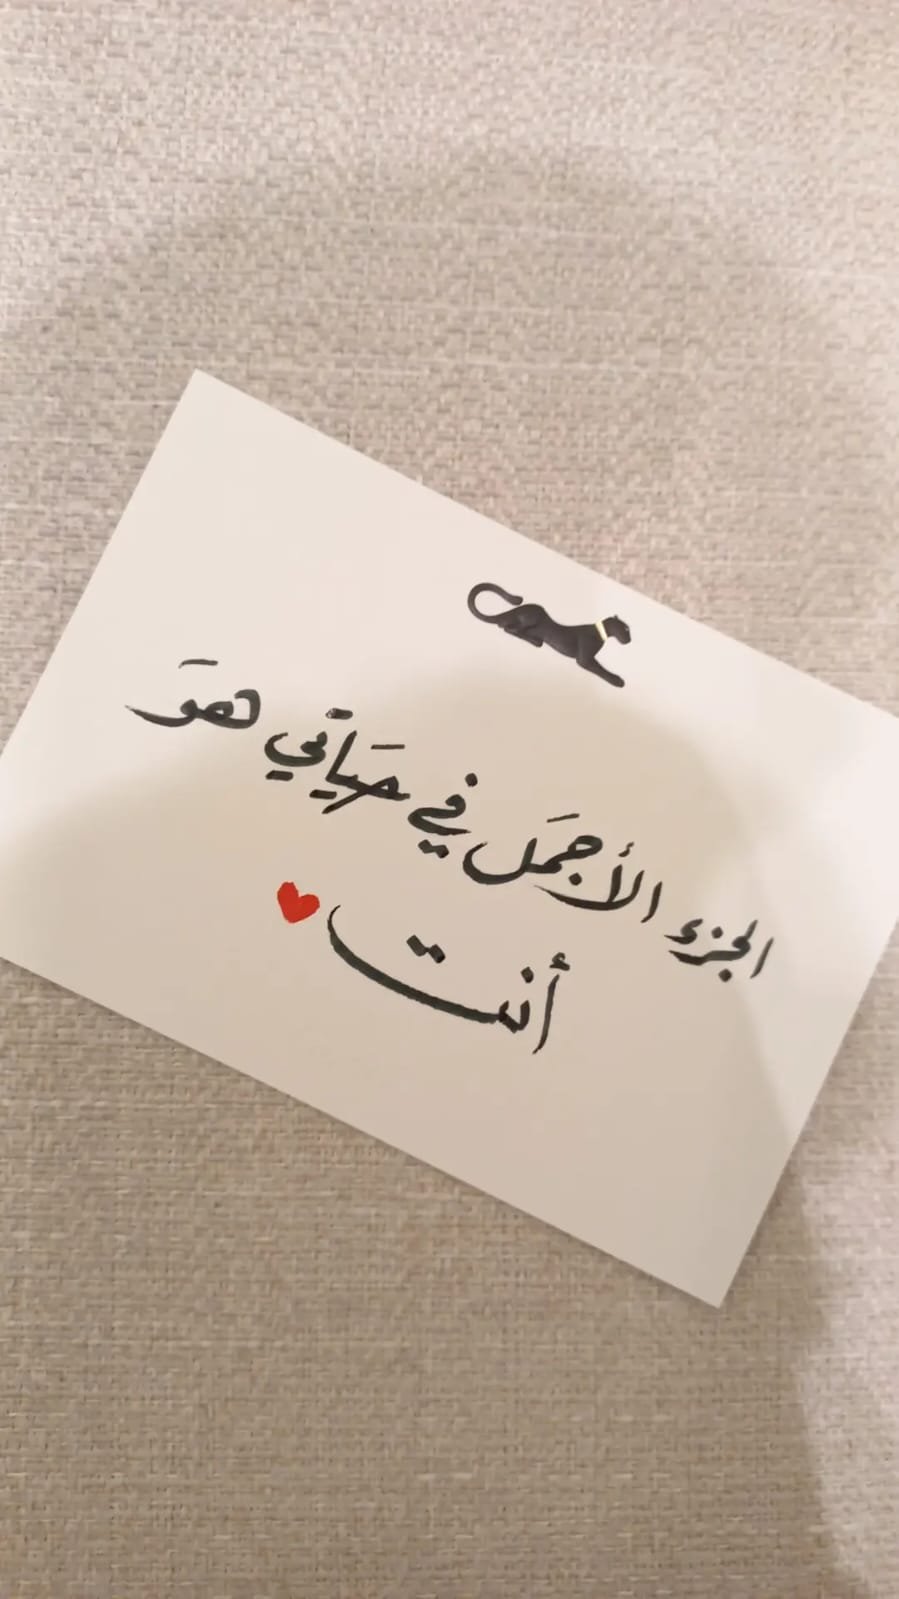 الجزء الأجمَل في حيَاتي هوَ
أنت